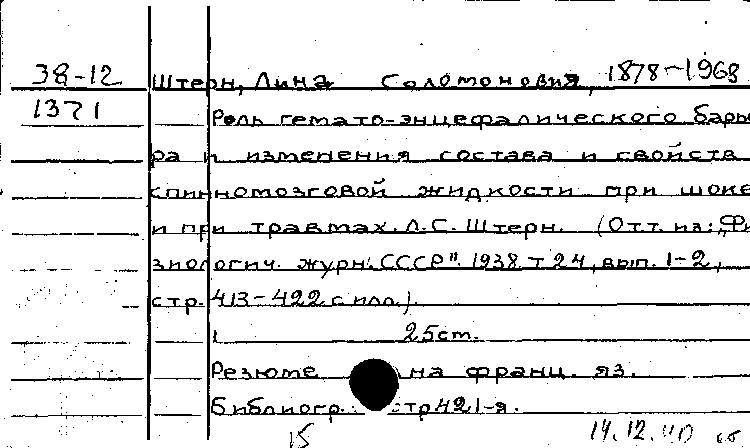 38-12 Штерн, Лина Соломоновна, 1878-1968
1371 Роль гемато-энцефалического барье
ра и изменения состава и свойств
спинномозговой жидкости при шоке
и при травмах. Л.С. Штерн. (Отт. из: „Фи
зиологич. журн. СССР". 1938 т 24, вып. 1-2,
стр. 413-422 с илл.).
25 cm.
Резюме на франц. яз.
Библиогр.: стр 421-я.
15 14.12.40